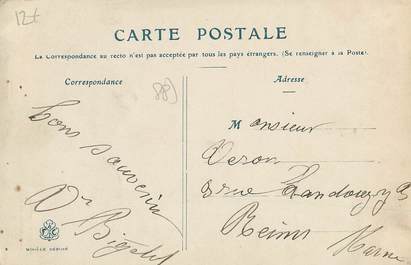 12t
CARTE POSTALE
La Correspondance au recto n'est pas acceptée par tous les pays étrangers. (Se renseigner à la Poste).
Correspondance
Adresse
Bons souvenirs
Dr Bigelet
Monsieur
Veron
8 rue
Reims
Marne